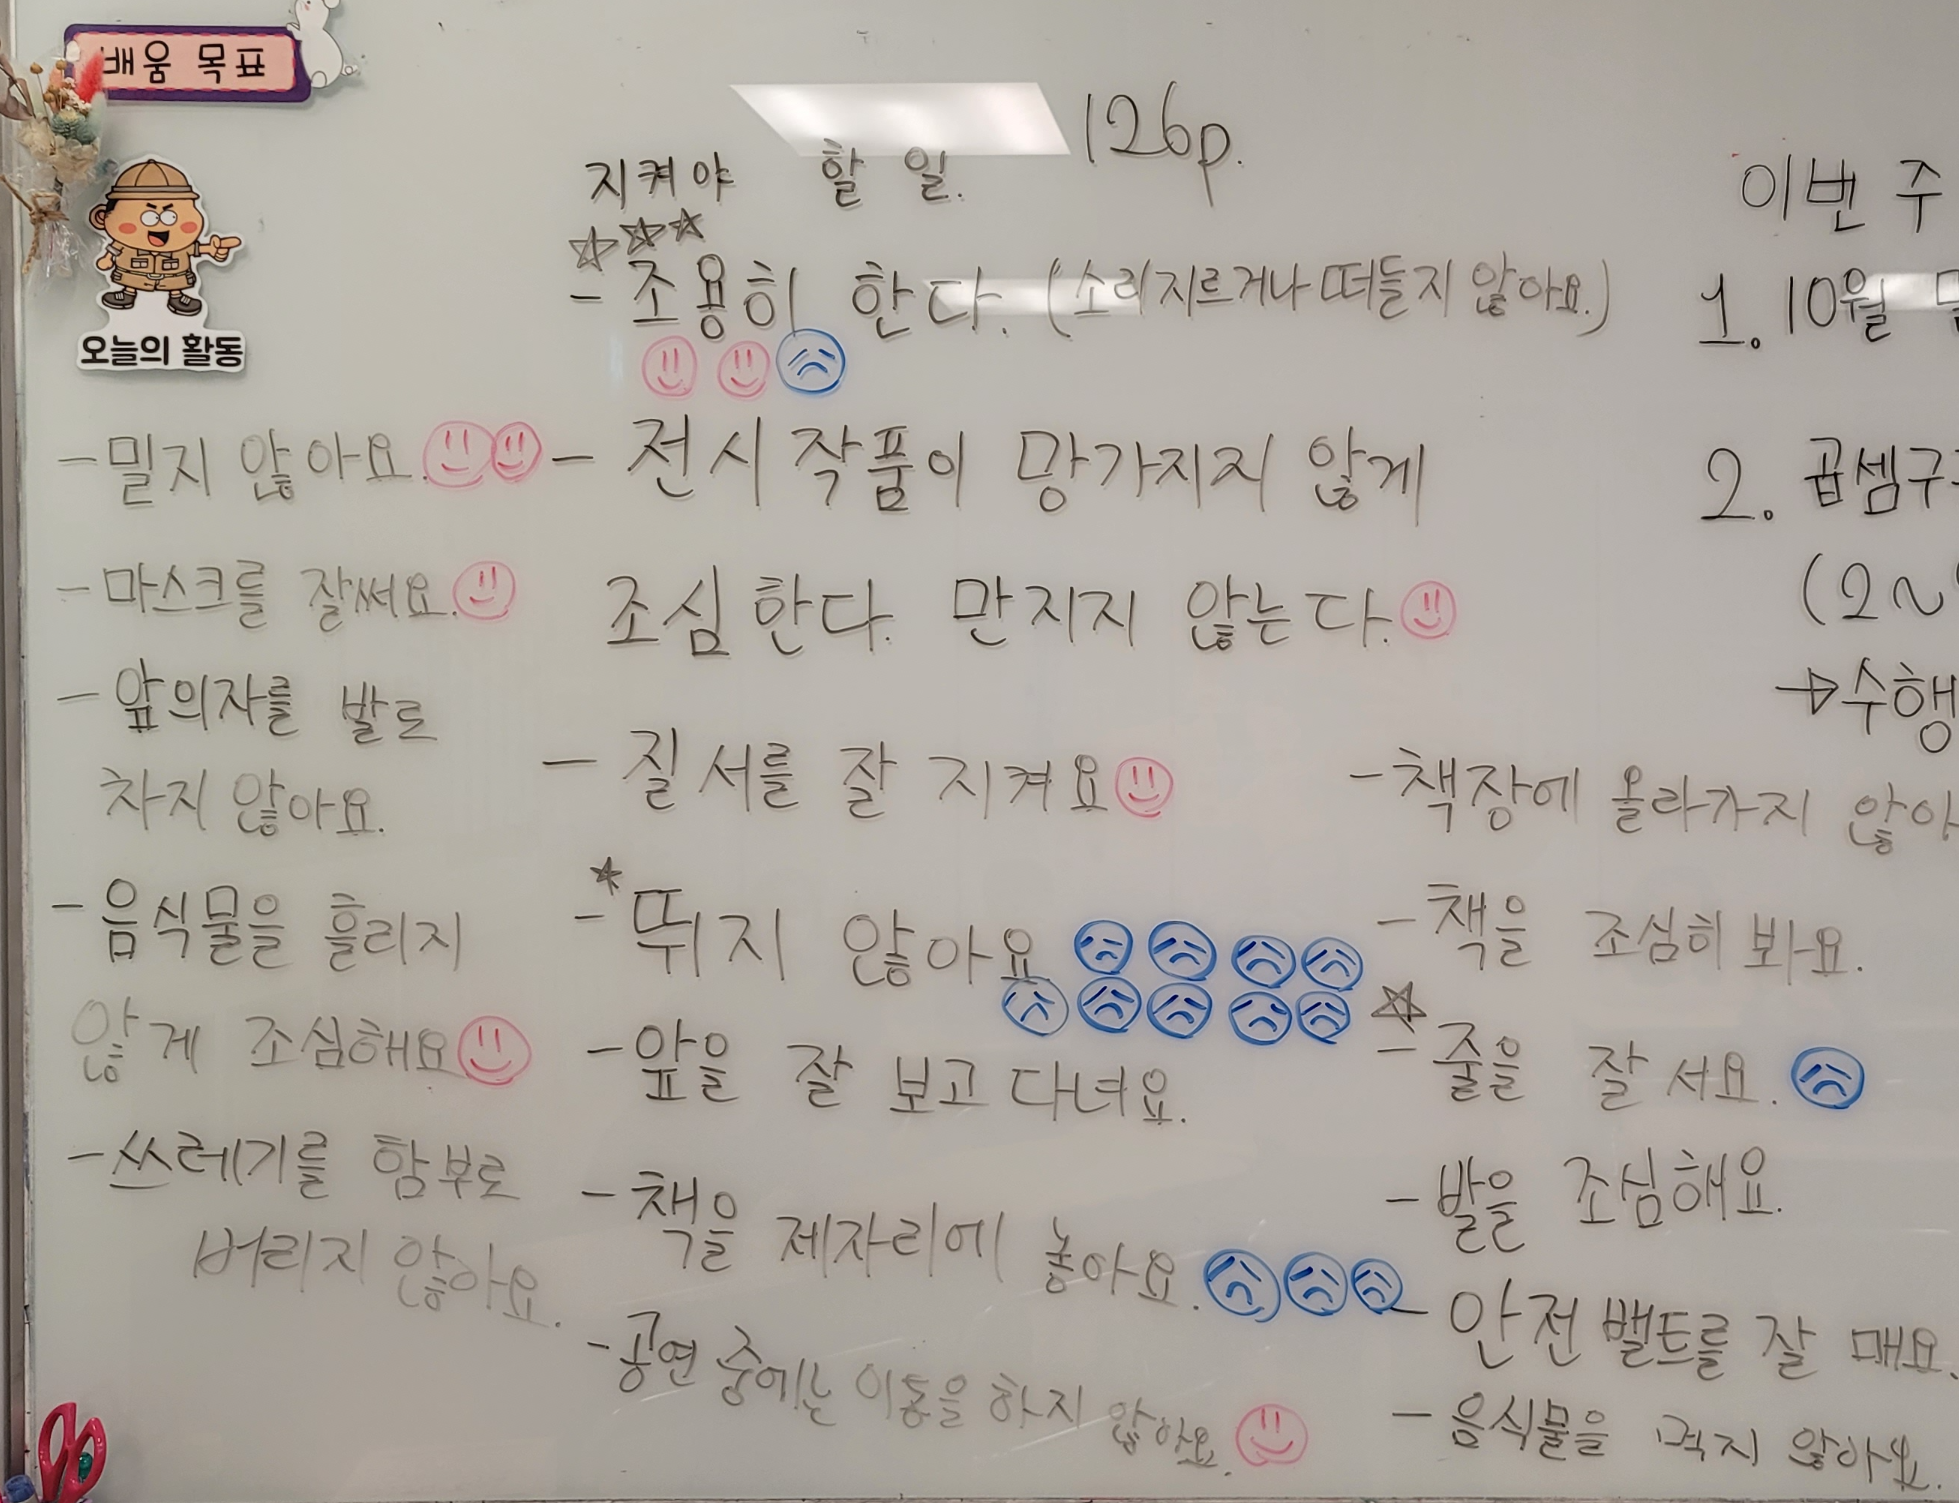 배움 목표
126p.
지켜야 할 일.
- 조용히 한다. (소리지르거나 떠들지 않아요.)
오늘의 활동
- 밀지 않아요.
- 마스크를 잘써요.
- 앞의자를 발로
차지 않아요.
- 음식물을 흘리지
않게 조심해요
- 쓰레기를 함부로
버리지 않아요.
- 전시 작품이 망가지지 않게
조심한다. 만지지 않는다.
- 질서를 잘 지켜요
- 뛰지 않아요
- 앞을 잘 보고 다녀요.
- 책을 제자리에 놓아요.
- 공연 중에는 이동을 하지 않아요.
이번 주
1. 10월
2. 곱셈구
(2~
→수행
- 책장에 올라가지 않아
- 책을 조심히 봐요.
- 줄을 잘 서요.
- 발을 조심해요.
- 안전 밸트를 잘 매요.
- 음식물을 먹지 않아요.